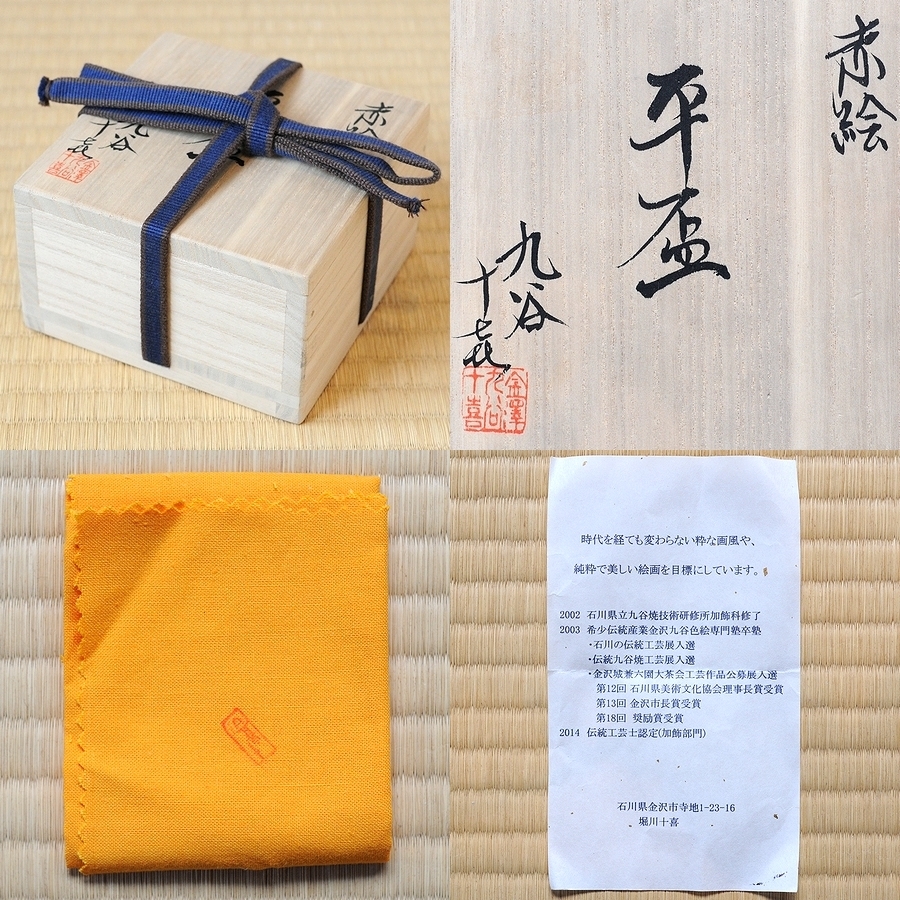 赤絵
平盃
九谷
十㐂
金澤
九谷
十喜
赤絵
平盃
九谷
十㐂
金澤
九谷
十喜
時代を経ても変わらない粋な画風や、
純粋で美しい絵画を目標にしています。
2002 石川県立九谷焼技術研修所加飾科修了
2003 希少伝統産業金沢九谷色絵専門塾卒塾
・石川の伝統工芸展入選
・伝統九谷焼工芸展入選
・金沢城兼六園大茶会工芸作品公募展入選
第12回 石川県美術文化協会理事長賞受賞
第13回 金沢市長賞受賞
第18回 奨励賞受賞
2014 伝統工芸士認定(加飾部門)
石川県金沢市寺地1-23-16
堀川十喜